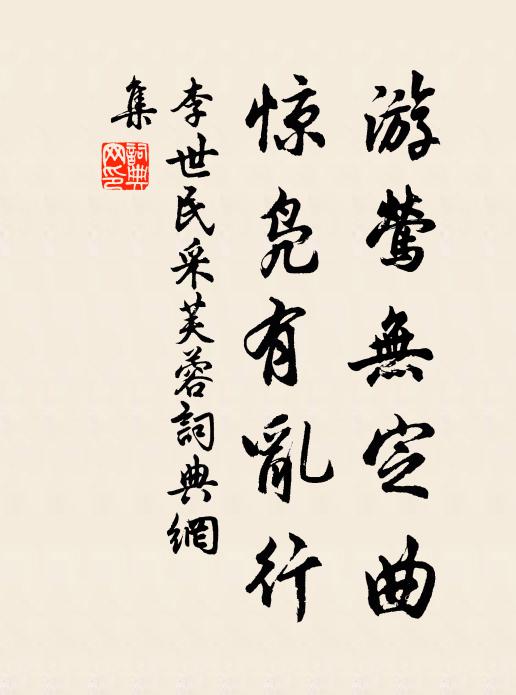 游莺無定曲
惊凫有亂行
李世民采芙蓉詞典網
集
詞典網印